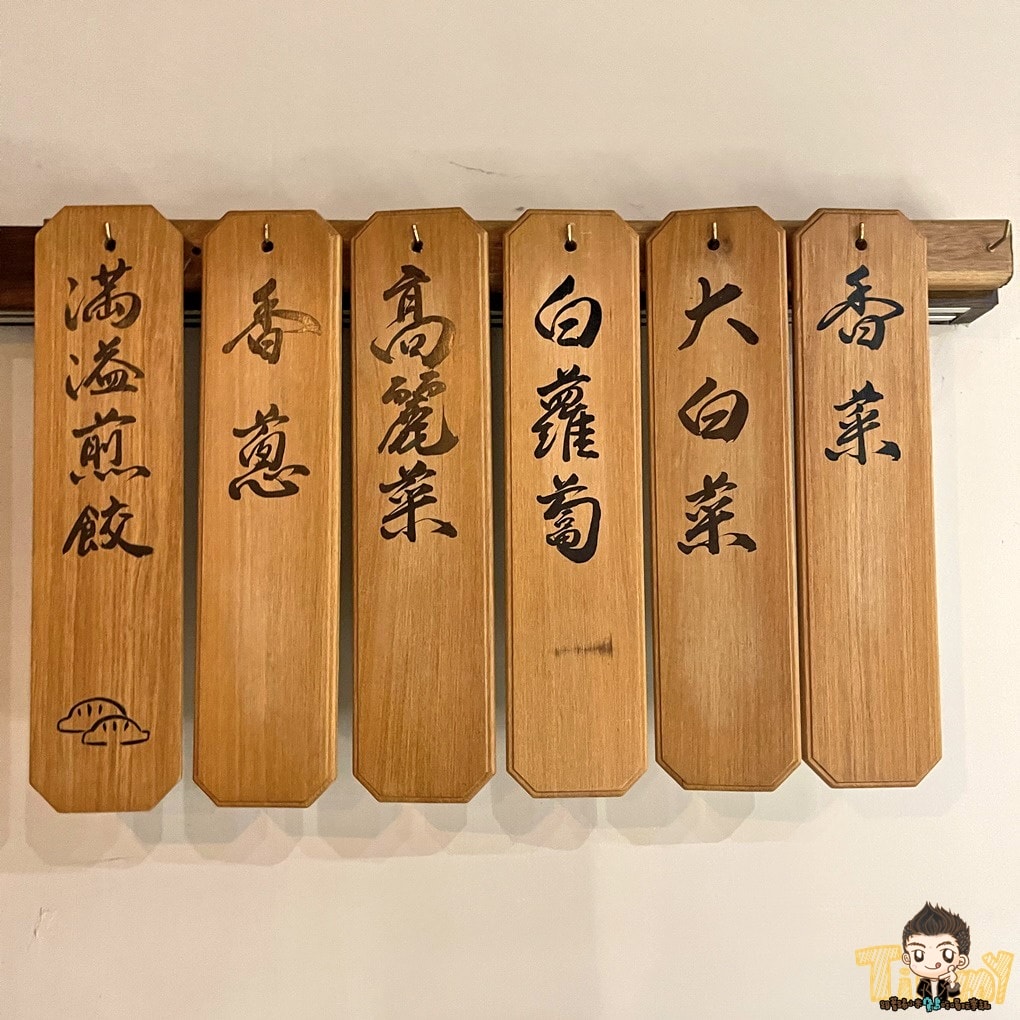 滿溢煎餃
香蔥
高麗菜
白蘿蔔
大白菜
香菜